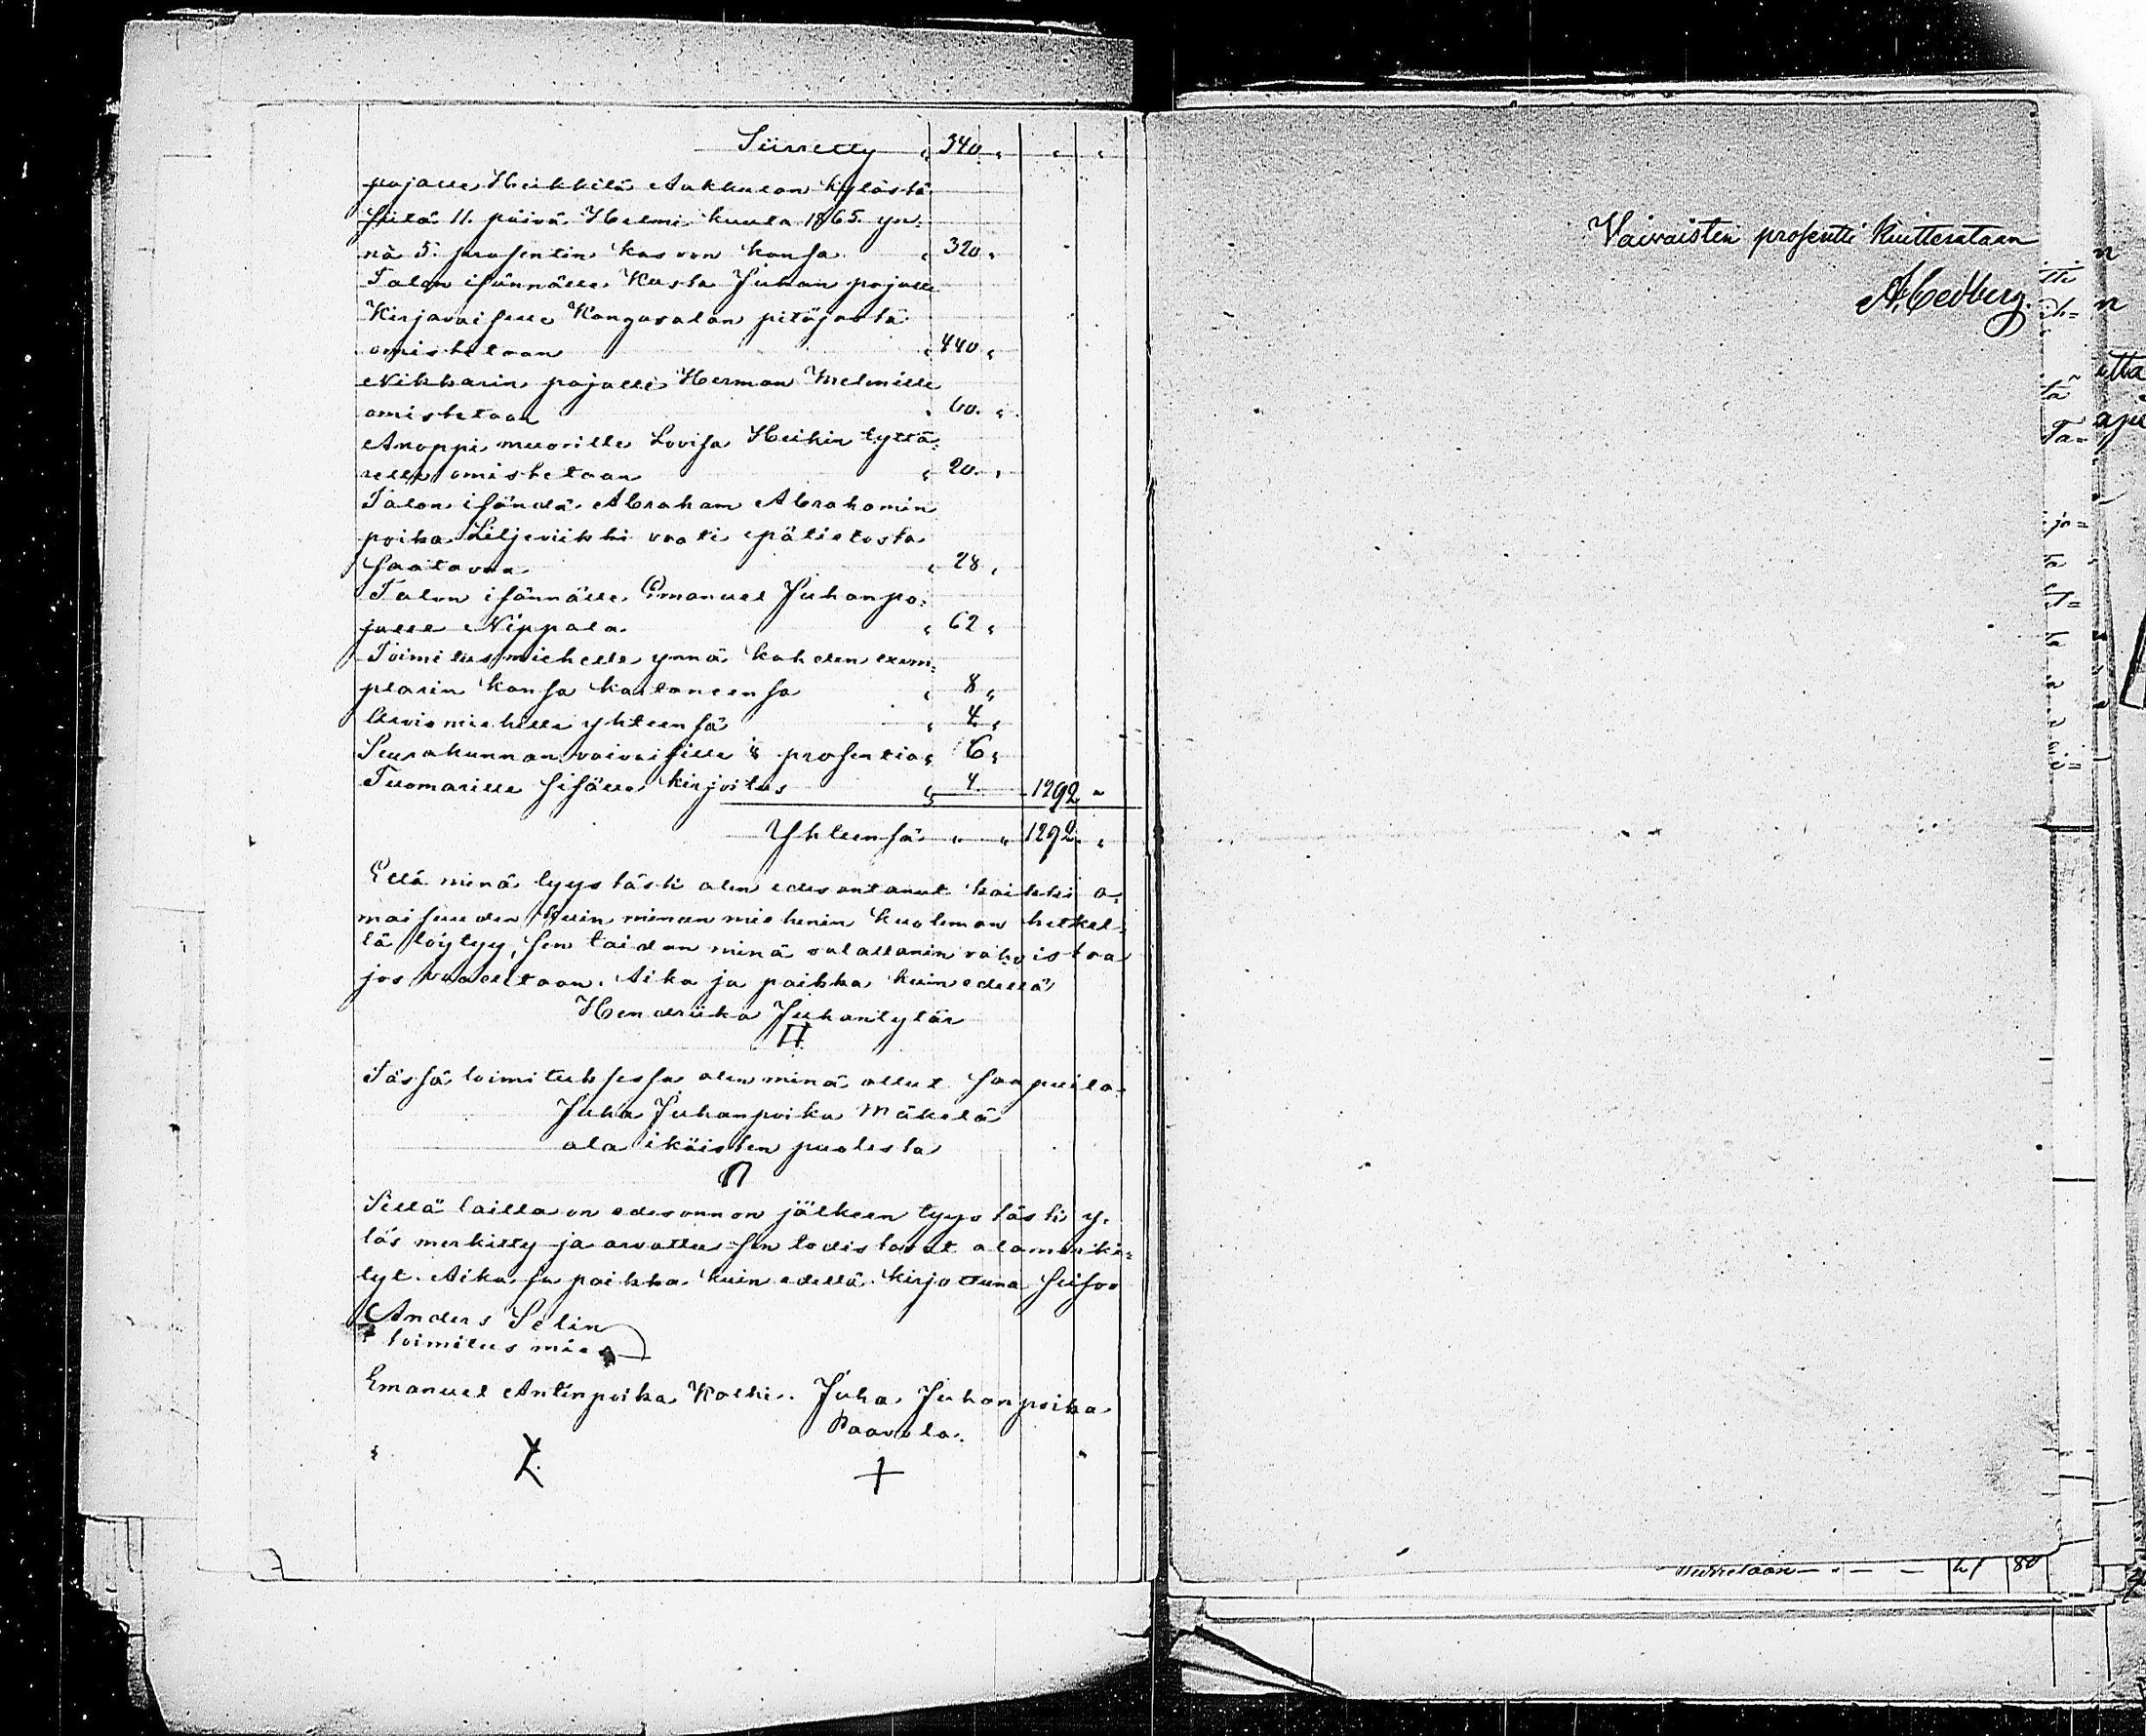 Siirretty " 340 " " "
pojalle Heikkilä Aakkulan kylästä
siitä 11. päivä Helmi kuuta 1865 yn:
nä 5. prosentin kasvon kansa " 320 "
Talon isännälle Kusta Juhan pojalle
Kirjavaiselle Kangasalan pitäjästä
omistetaan " 440 "
Nikkarin pojalle Herman Melinille
omistetaan " 60. "
Anoppi muorille Lovisa Heikin tyttä:
relle omistetaan " 20. "
Talon isändä Abraham Abrahamin
poika Liljeviikki vaati epälietosta
saatavaa " 28 "
Talon isännälle Emanuel Juhanpo:
jalle Nippala " 62 "
Toimitusmiehelle ynnä kahden exem:
plarin kansa kartaneensa " 8 "
Arviomiehille yhteensä " 4. "
Seurakunnan vaivaisille ⅛ prosentia " 6 "
Tuomarille sisälle kirjoitus " 4. 1292 "
Yhteensä " " 1292 "
Että minä tyystästi olen edesantanut kaikki o:
maisuuden kuin minun miehenin kuoleman hetkel:
lä löytyy, sen taidan minä valallanin vahvistaa
jos vaaditaan. Aika ja paikka kuin edellä
Hendriika Juhantytär
Tässä toimituksessa olen minä ollut saapuila
Juha Juhanpoika Mäkelä
ala ikäisten puolesta
Sillä lailla on edesannon jälkeen tyystästi y:
lös merkitty ja arvattu sen todistavat alamerki:
tyt. Aika ja paikka kuin edellä kirjottuna seisoo
Anders Selin
toimitus mies
Emanuel Antinpoika Kolki. Juha Juhanpoika
Paavola.
Vaivaisten prosentti kuitterataan
A. Cedberg.
siirretaan 80